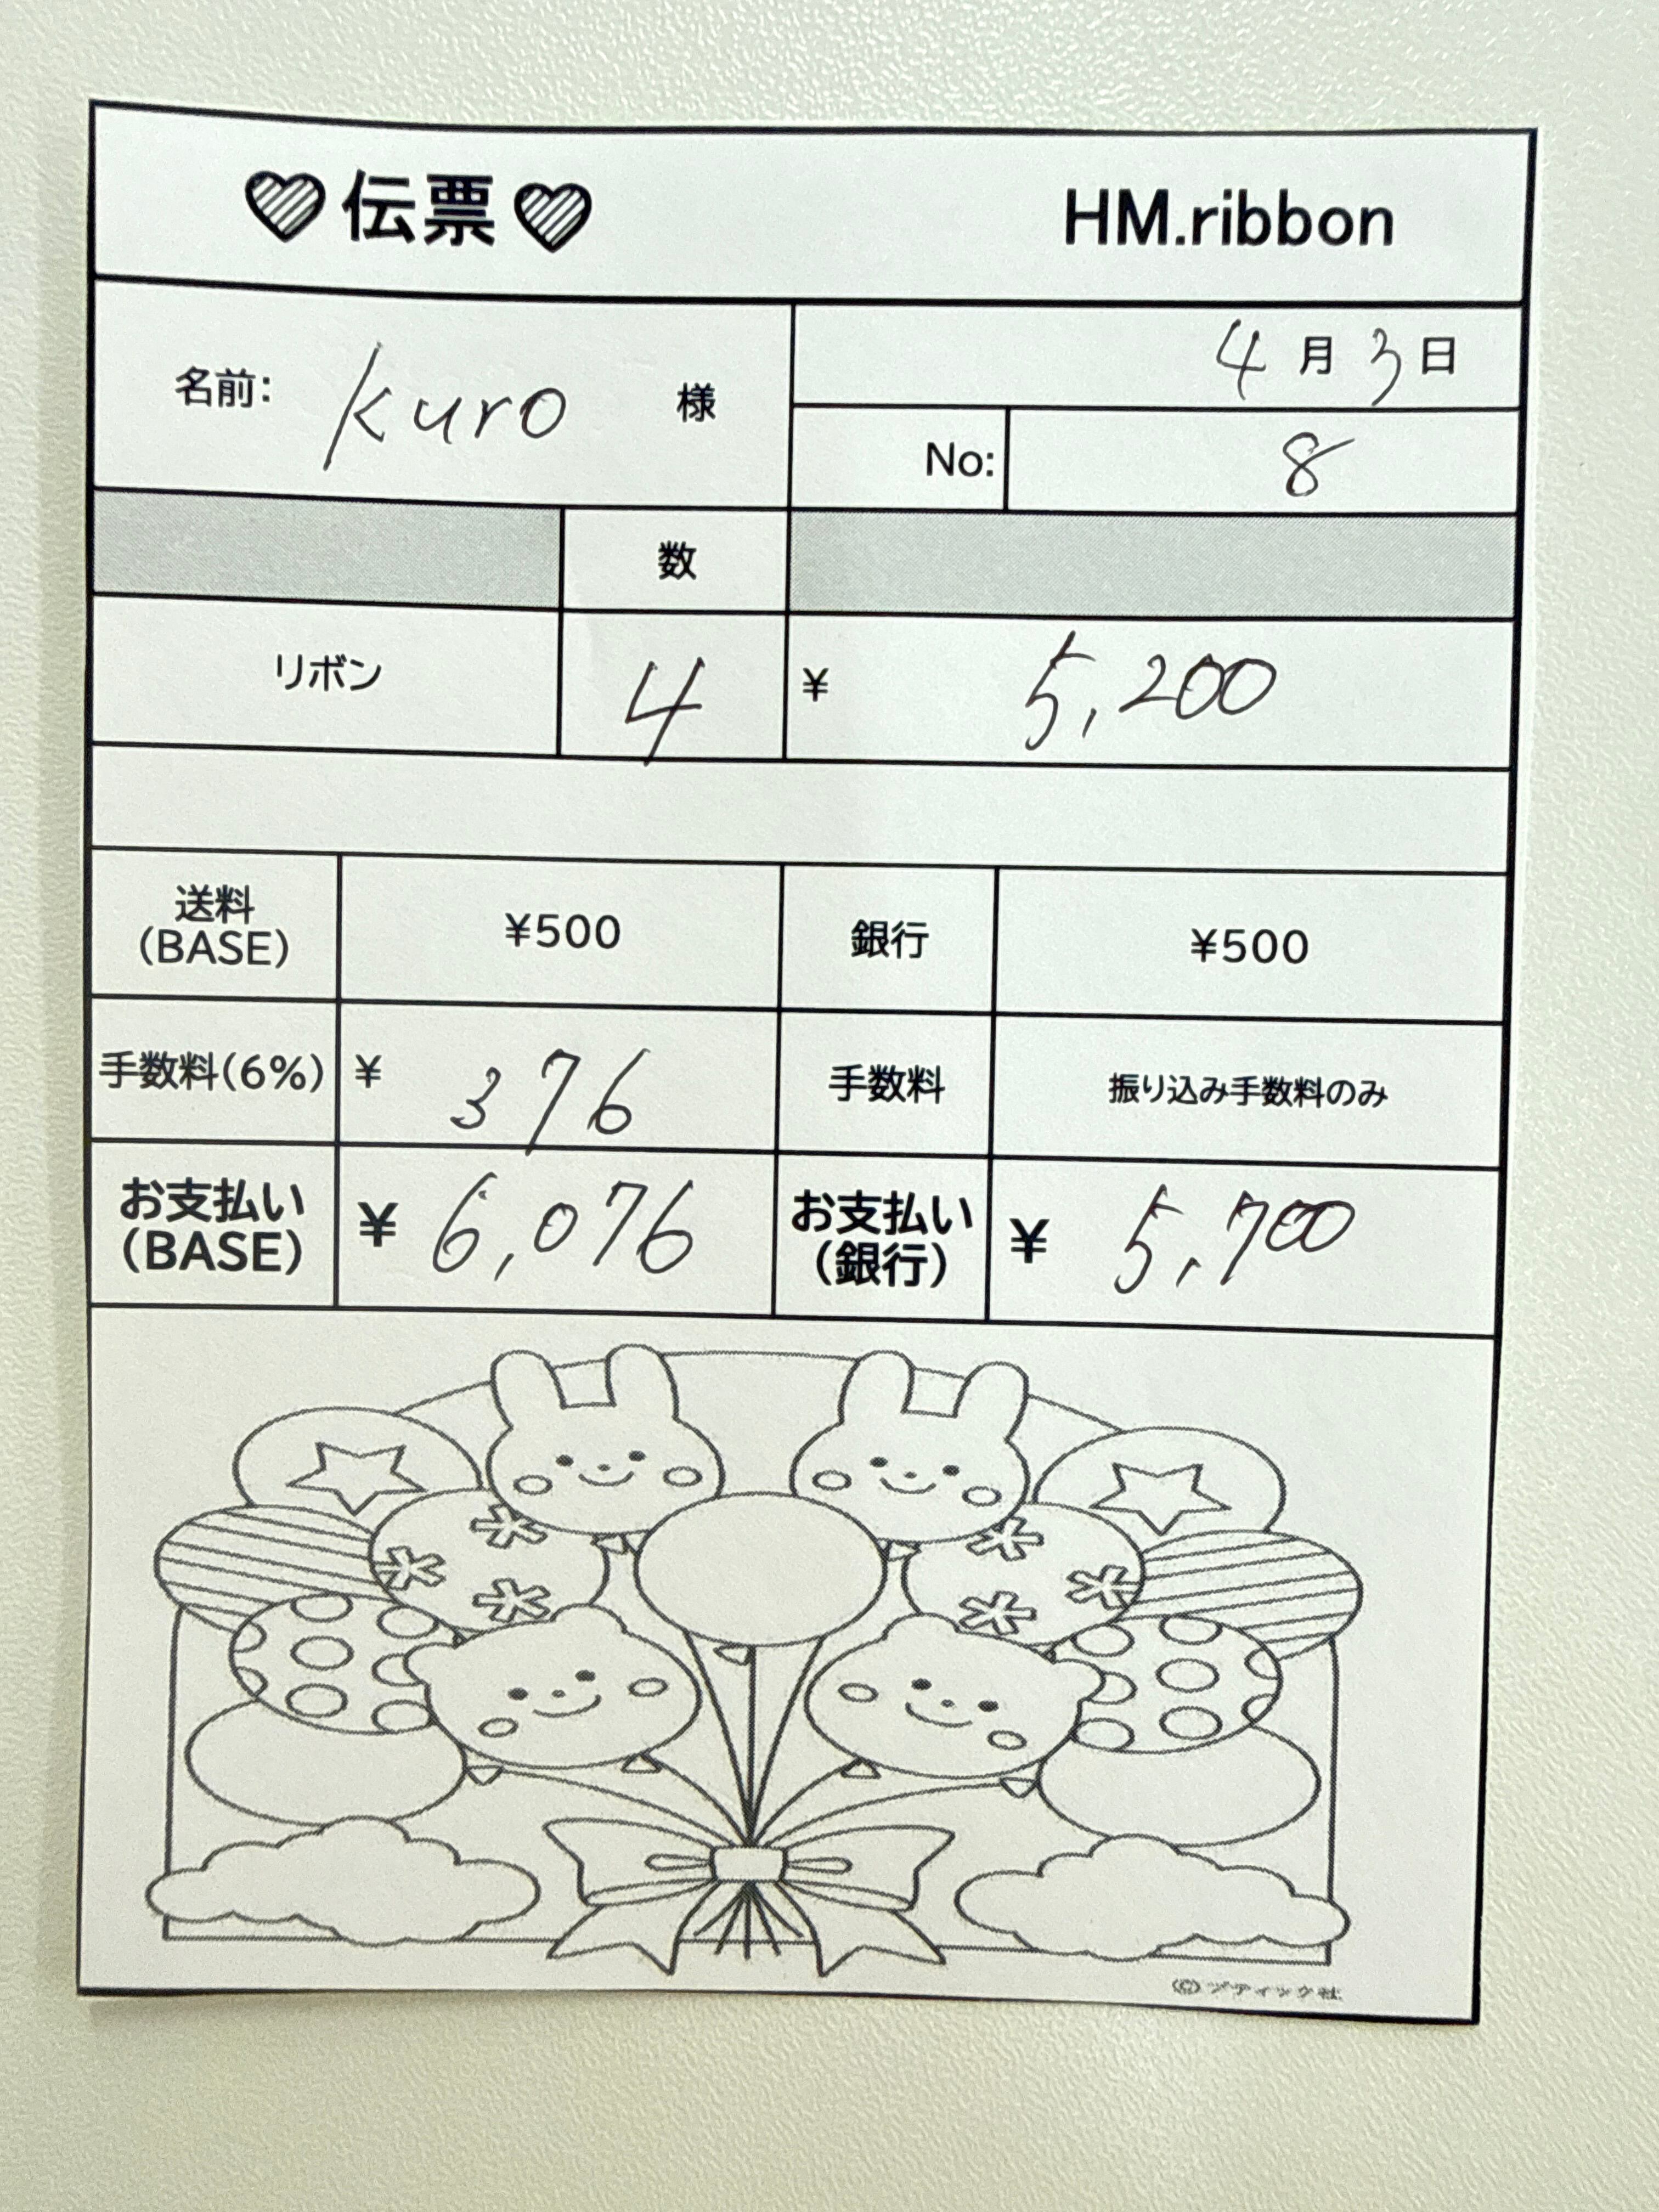 伝票 HM.ribbon
名前: kuro 様
4月3日
No: 8
数
リボン 4 ¥ 5,200
送料(BASE) ¥500 銀行 ¥500
手数料(6%) ¥ 376 手数料 振り込み手数料のみ
お支払い(BASE) ¥ 6,076 お支払い(銀行) ¥ 5,700
©ブティック社